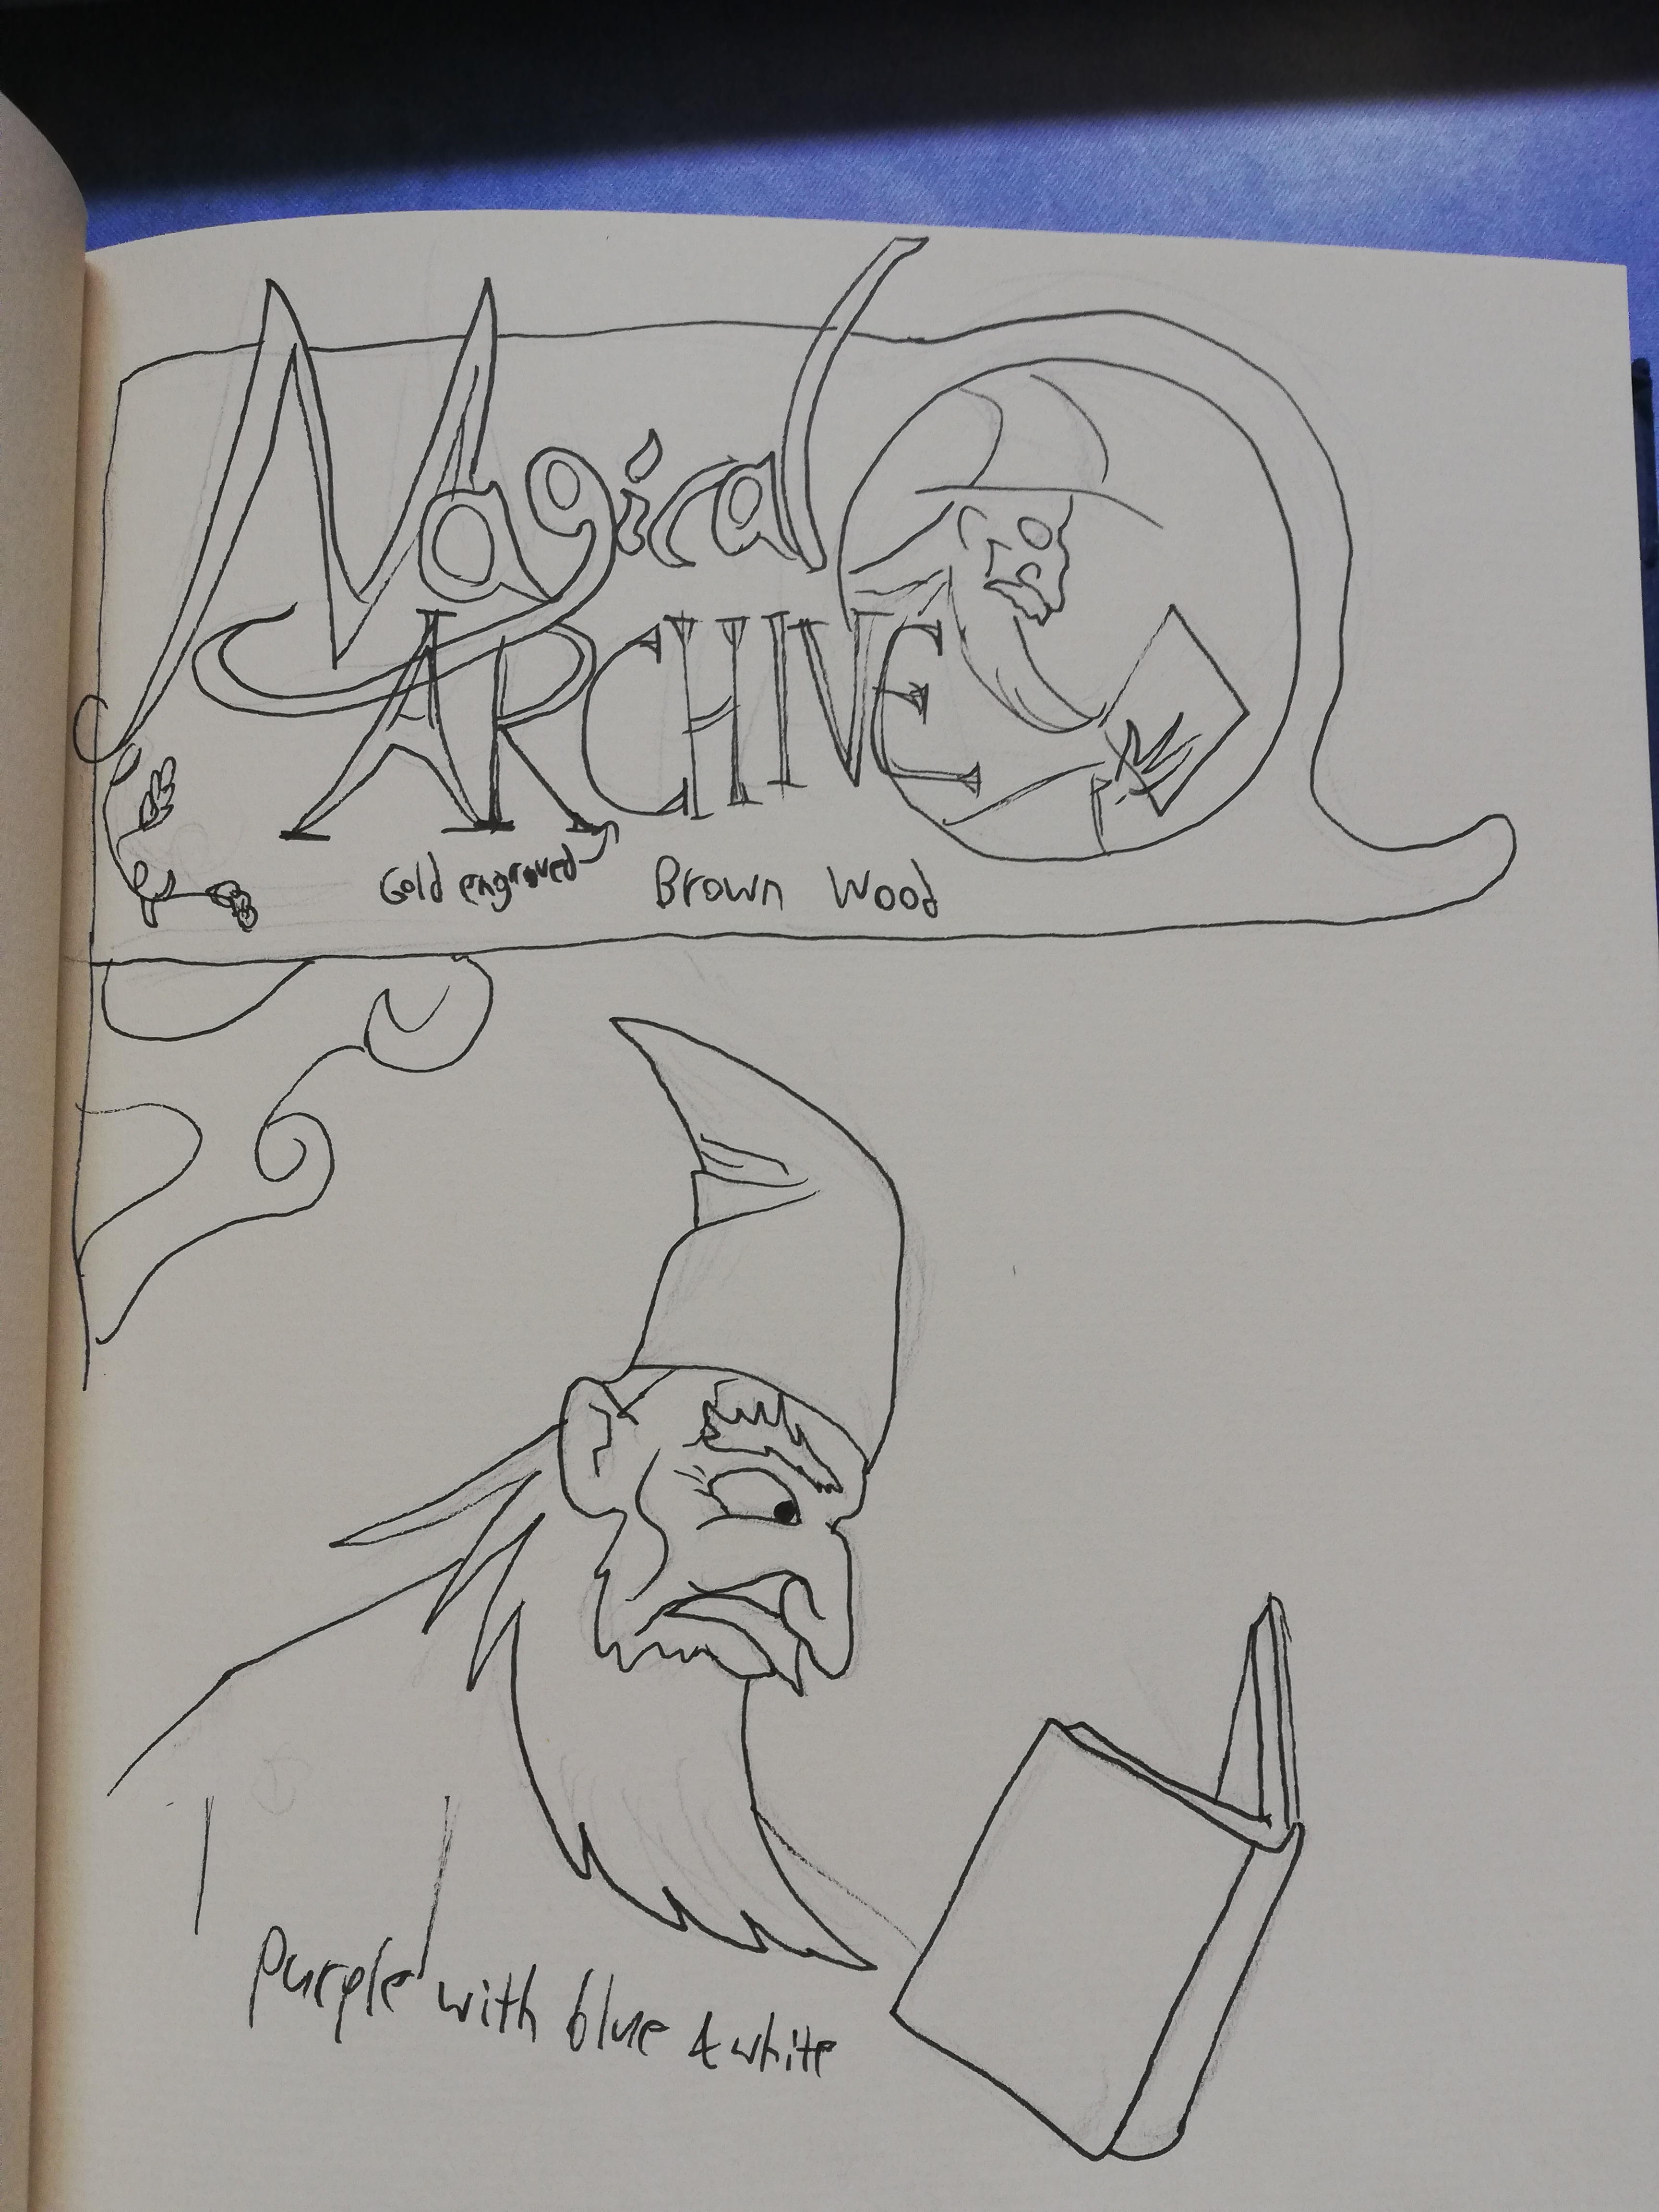 Magical
ARCHIVE
Gold engraved
Brown Wood
Purple with blue & white